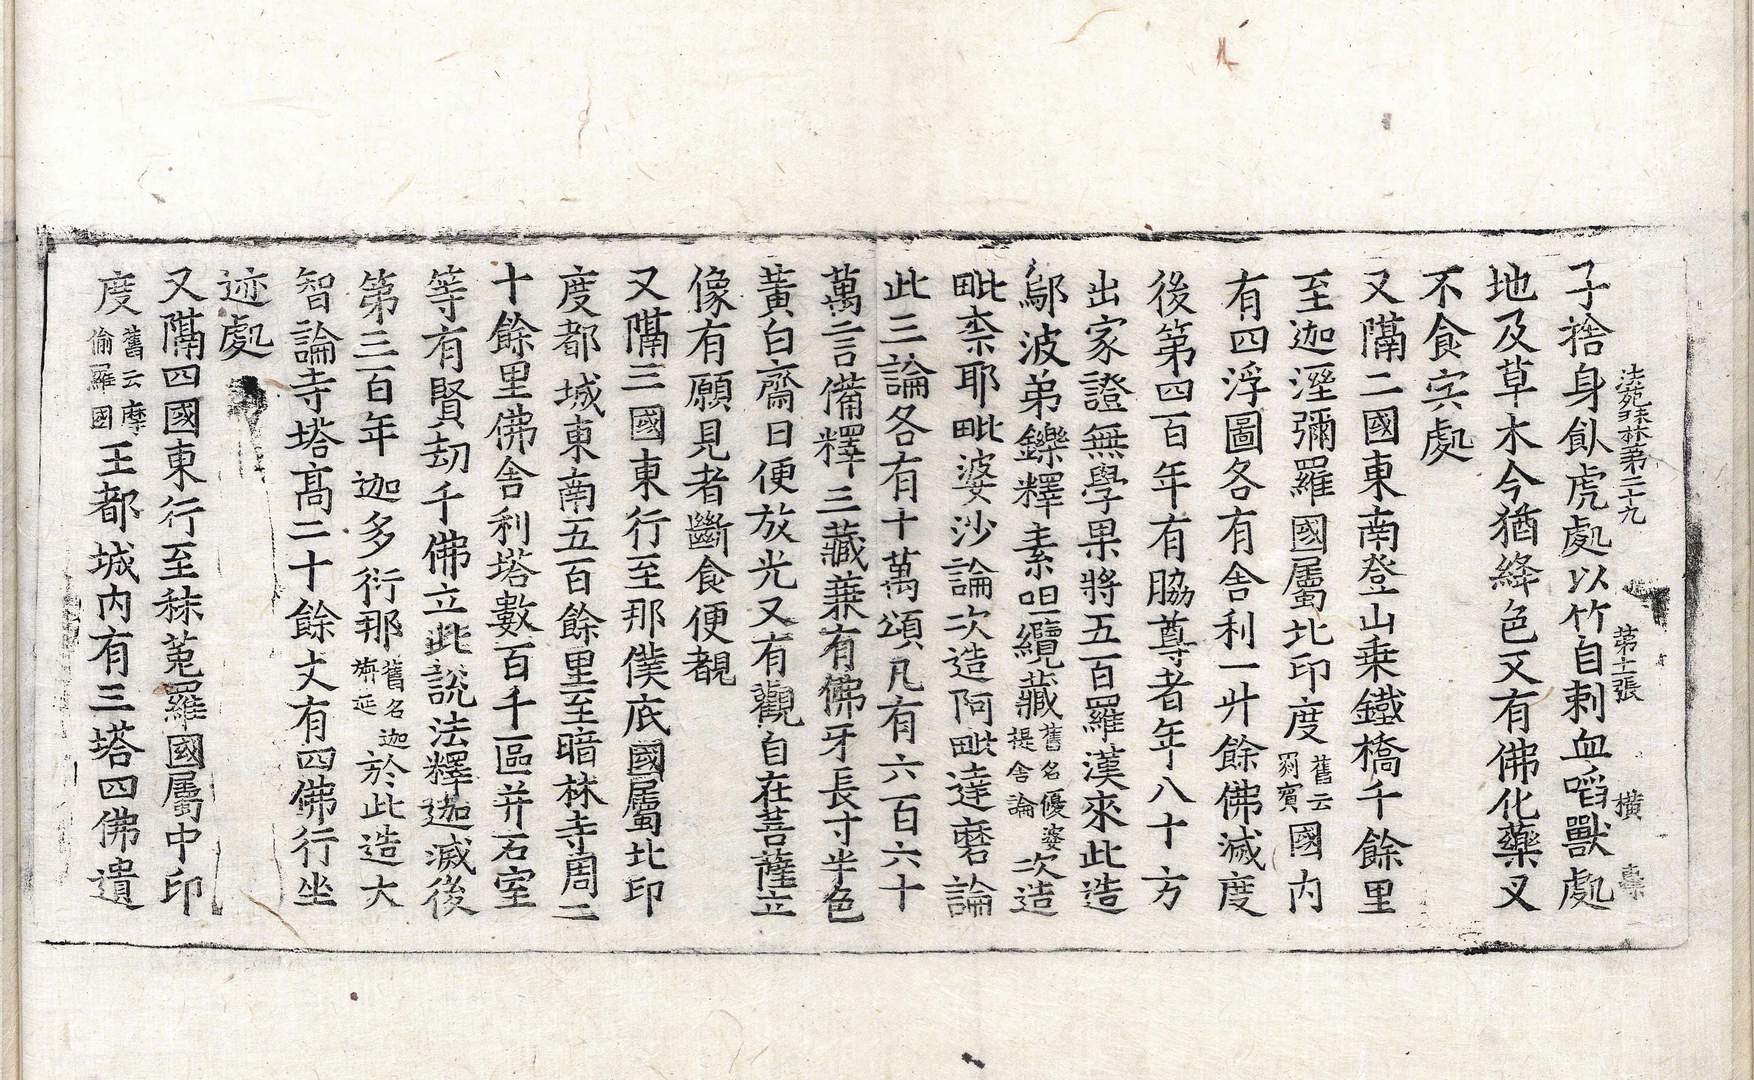 法苑珠林第二十九　第十一張　橫
子捨身飤虎處以竹自刺血啗獸處
地及草木今猶絳色又有佛化藥叉
不食宍處
又隔二國東南登山乗鐵橋千餘里
至迦溼彌羅國屬北印度舊云罽賓國内
有四浮圖各有舍利一升餘佛滅度
後第四百年有脇尊者年八十方
出家證無學果將五百羅漢來此造
鄔波弟鑠釋素呾纜藏舊名優婆提舍論次造
毗柰耶毗婆沙論次造阿毗達磨論
此三論各有十萬頌凡有六百六十
萬言備釋三藏兼有佛牙長寸半色
黃白齋日便放光又有觀自在菩薩立
像有願見者斷食便覩
又隔三國東行至那僕底國屬北印
度都城東南五百餘里至暗林寺周二
十餘里佛舍利塔數百千區并石室
等有賢劫千佛立此說法釋迦滅後
第三百年迦多衍那舊名迦旃延於此造大
智論寺塔高二十餘丈有四佛行坐
迹處
又隔四國東行至秣菟羅國屬中印
度舊云摩偷羅國王都城内有三塔四佛遺